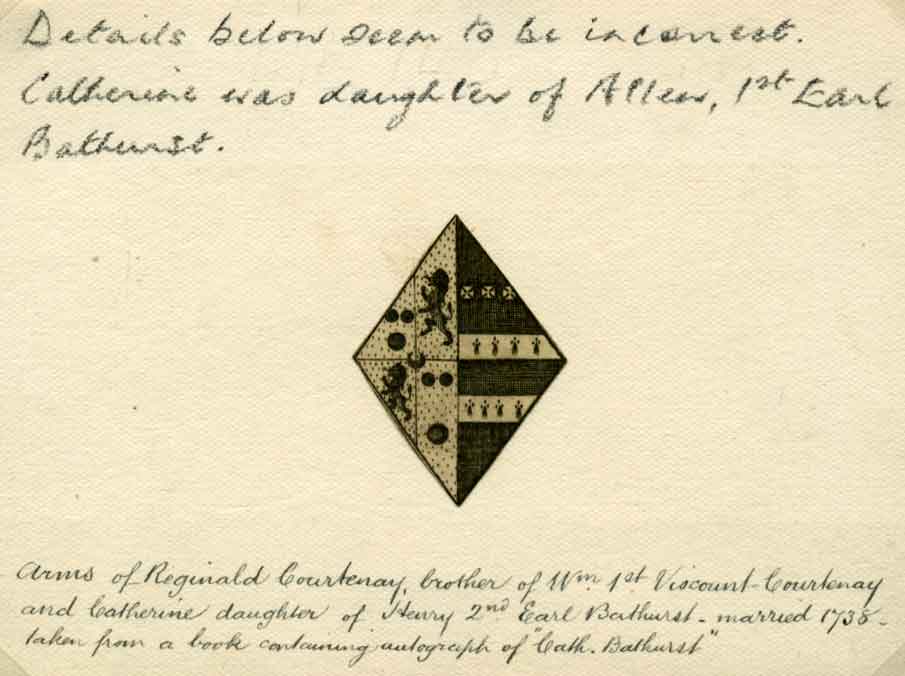 Details below seem to be incorrect.
Catherine was daughter of Allen, 1st Earl
Bathurst.
Arms of Reginald Courtenay, brother of Wm 1st Viscount Courtenay
and Catherine daughter of Henry 2nd Earl Bathurst - married 1738 -
taken from a book containing autograph of "Cath. Bathurst"